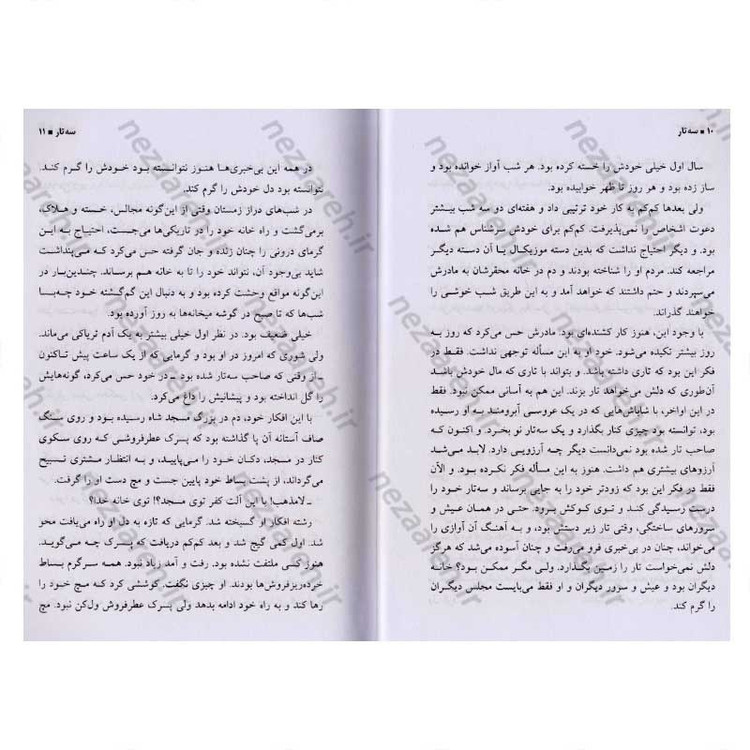 ۱۰ ■ سه‌تار
سال اول خیلی خودش را خسته کرده بود. هر شب آواز خوانده بود و
ساز زده بود و هر روز تا ظهر خوابیده بود.
ولی بعدها کم‌کم به کار خود ترتیبی داد و هفته‌ای دو سه شب بیشتر
دعوت اشخاص را نمی‌پذیرفت. کم‌کم برای خودش سرشناس هم شده
بود. و دیگر احتیاج نداشت که بدین دسته موزیکال یا آن دسته دیگر
مراجعه کند. مردم او را شناخته بودند و دم در خانه محقرشان به مادرش
می‌سپردند و حتم داشتند که خواهد آمد و به این طریق شب خوشی را
خواهند گذراند.
با وجود این، هنوز کار کشنده‌ای بود. مادرش حس می‌کرد که روز به
روز بیشتر تکیده می‌شود. خود او به این مسأله توجهی نداشت. فقط در
فکر این بود که تاری داشته باشد. و بتواند با تاری که مال خودش باشد
آن‌طوری که دلش می‌خواهد تار بزند. این هم به آسانی ممکن نبود. فقط
در این اواخر، با شاباش‌هایی که در یک عروسی آبرومند به او رسیده
بود، توانسته بود چیزی کنار بگذارد و یک سه‌تار نو بخرد. و اکنون که
صاحب تار شده بود نمی‌دانست دیگر چه آرزویی دارد. لابد می‌شد
آرزوهای بیشتری هم داشت. هنوز به این مسأله فکر نکرده بود. و الآن
فقط در فکر این بود که زودتر خودش را به جایی برساند و سه‌تار خود را
درست رسیدگی کند و توی کوکش برود. حتی در همان عیش و
سرورهای ساختگی، وقتی تار زیر دستش بود، و به آهنگ آن آوازی را
می‌خواند، چنان در بی‌خبری فرو می‌رفت و چنان آسوده می‌شد که هرگز
دلش نمی‌خواست تار را زمین بگذارد. ولی مگر ممکن بود؟ خانه
دیگران بود و عیش و سرور دیگران و او فقط می‌بایست مجلس دیگران
را گرم کند.
سه‌تار ■ ۱۱
در همه این بی‌خبری‌ها هنوز نتوانسته بود خودش را گرم کند.
نتوانسته بود دل خودش را گرم کند.
در شب‌های دراز زمستان وقتی از این‌گونه مجالس، خسته و هلاک،
برمی‌گشت و راه خانه خود را در تاریکی‌ها می‌جست، احتیاج به این
گرمای درونی را چنان زنده و جان گرفته حس می‌کرد که می‌پنداشت
شاید بی‌وجود آن، نتواند خود را تا به خانه هم برساند. چندین‌بار در
این‌گونه مواقع وحشت کرده بود و به دنبال این گم‌گشته خود چه‌بسا
شب‌ها که تا صبح در گوشه میخانه‌ها به روز آورده بود.
خیلی ضعیف بود. در نظر اول خیلی بیشتر به یک آدم تریاکی می‌ماند.
ولی شوری که امروز در او بود و گرمایی که از یک ساعت پیش تاکنون
ـ از وقتی که صاحب سه‌تار شده بود ـ در خود حس می‌کرد، گونه‌هایش
را گل انداخته بود و پیشانیش را داغ می‌کرد.
با این افکار خود، دم در بزرگ مسجد شاه رسیده بود و روی سنگ
صاف آستانه آن پا گذاشته بود که پسرک عطرفروشی که روی سکوی
کنار در مسجد، دکان خود را می‌پایید، و به انتظار مشتری تسبیح
می‌گرداند، از پشت بساط خود پایین جست و مچ دست او را گرفت.
ـ لامذهب! با این آلت کفر توی مسجد؟! توی خانه خدا؟
رشته افکار او گسیخته شد. گرمایی که تازه به دل او راه می‌یافت محو
شد. اول کمی گیج شد و بعد کم‌کم دریافت که پسرک چه می‌گوید.
هنوز کسی ملتفت نشده بود. رفت و آمد زیاد نبود. همه سرگرم بساط
خرده‌ریزفروش‌ها بودند. او چیزی نگفت. کوششی کرد که مچ خود را
رها کند و به راه خود ادامه بدهد ولی پسرک عطرفروش ول‌کن نبود. مچ
nezaareh.ir
nezaareh.ir
nezaareh.ir
nezaareh.ir
nezaareh.ir
nezaareh.ir